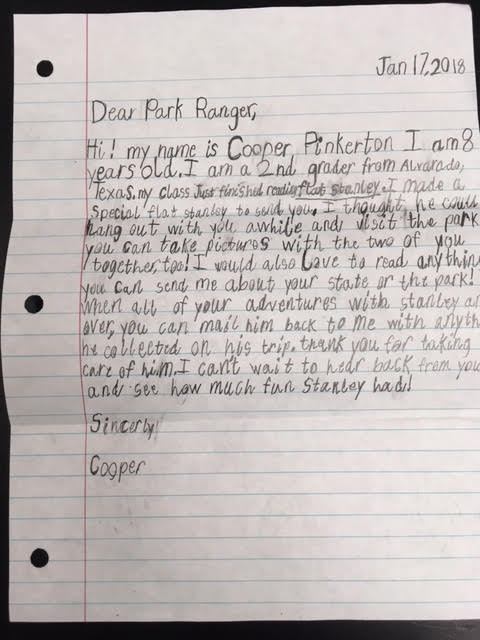 Jan 17, 2018
Dear Park Ranger,
Hi! my name is Cooper Pinkerton I am 8
years old. I am a 2nd grader from Alvarado,
Texas. my class Just finished reading flat stanley. I made a
special flat stanley to send you. I thought he could
hang out with you awhile and visit the park
you can take pictures with the two of you
together, too! I would also Love to read anythin
you can send me about your state or the park!
When all of your adventures with stanley ar
over, you can mail him back to me with anyth
he collected on his trip. thank you for taking
care of him. I can't wait to hear back from you
and see how much fun Stanley had!
Sincerly
Cooper